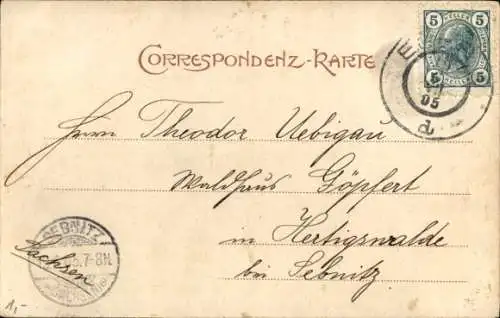 CORRESPONDENZ-KARTE
5 HELLER 5
05
d
Herrn Theodor Uebigau
Waldhaus Göpfert
in Hertigswalde
bei Sebnitz
SEBNITZ
7-8N.
Sachsen
1,-